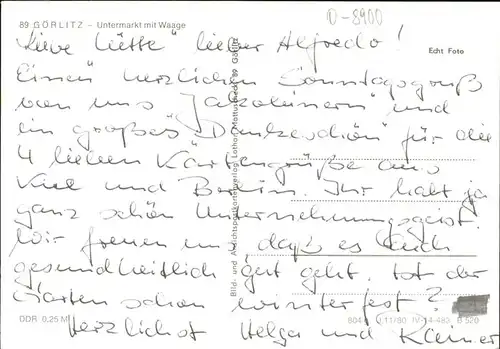 89 GÖRLITZ – Untermarkt mit Waage
D-8900
Echt Foto
Liebe Lütte, lieber Alfredo!
Einen herzlichen Sonntagsgruß
von uns "
" und
ein großes "Dankeschön" für die
4 lieben Kärtengrüße aus
Kiel und Berlin. Ihr habt ja
ganz schön Unternehmungsgeist.
Wir freuen uns, daß es Euch
gesundheitlich gut geht. Ist der
Garten schon winterfest?
Herzlichst Helga und Rainer
Bild- und Ansichtskartenverlag Lothar Mattuscheck, 89 Görlitz
DDR 0,25 M
IV-14-483 B 520